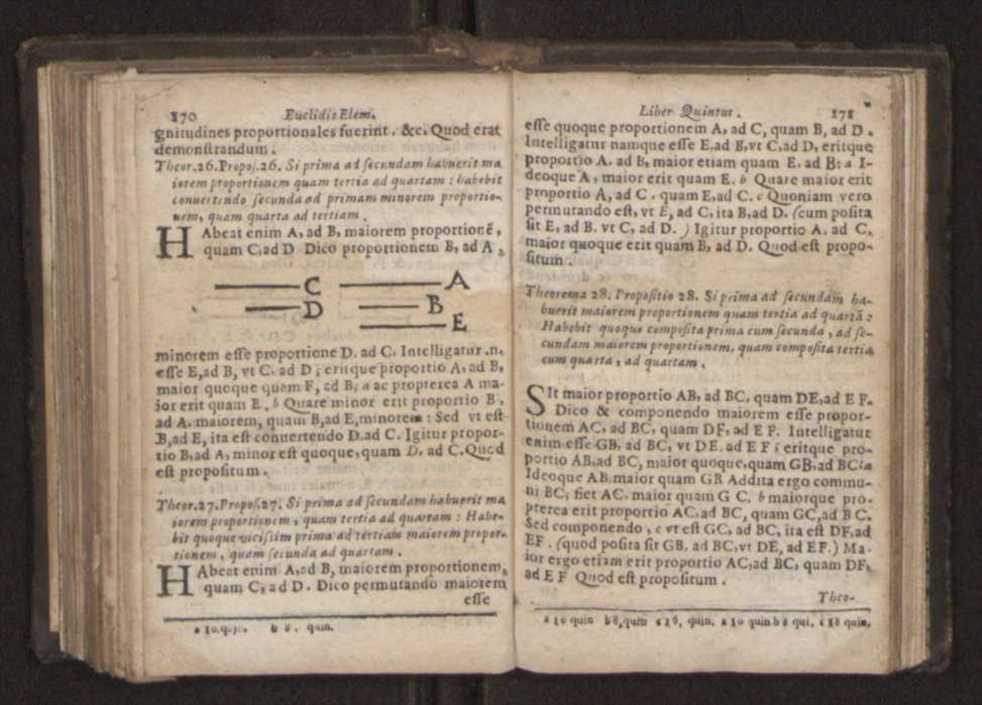 170 Euclidis Elem.
gnitudines proportionales fuerint. &c. Quod erat
demonstrandum.
Theor.26.Propos.26. Si prima ad secundam habuerit ma
iorem proportionem quam tertia ad quartam : habebit
conuertendo secunda ad primam minorem proportio-
nem, quam quarta ad tertiam.
HAbeat enim A, ad B, maiorem proportionē,
quam C, ad D Dico proportionem B, ad A,
C A
D B
E
minorem esse proportione D. ad C. Intelligatur .n.
esse E, ad B, vt C. ad D; eritque proportio A, ad B,
maior quoque quam F, ad B; a ac propterea A ma-
ior erit quam E. b Quare minor erit proportio B,
ad A. maiorem, quam B, ad E, minorem : Sed vt est
B, ad E, ita est conuertendo D. ad C. Igitur propor-
tio B, ad A, minor est quoque, quam D, ad C. Quod
est propositum.
Theor.27.Propos.27. Si prima ad secundam habuerit ma
iorem proportionem, quam tertia ad quartam : Habe-
bit quoque vicissim prima ad tertiam maiorem propor-
tionem, quam secunda ad quartam.
HAbeat enim A, ad B, maiorem proportionem,
quam C, ad D. Dico permutando maiorem
esse
a 10. qui. b 8. quin.
Liber Quintus. 171
esse quoque proportionem A, ad C, quam B, ad D.
Intelligatur namque esse E, ad B, vt C, ad D, eritque
proportio A. ad B, maior etiam quam E. ad B: a I-
deoque A, maior erit quam E. b Quare maior erit
proportio A, ad C. quam E, ad C. c Quoniam vero
permutando est, vt E, ad C, ita B, ad D. (cum posita
sit E, ad B. vt C, ad D. ) Igitur proportio A. ad C,
maior quoque erit quam B, ad D. Quod est propo-
situm.
Theorema 28. Propositio 28. Si prima ad secundam ha-
buerit maiorem proportionem quam tertia ad quartā :
Habebit quoque composita prima cum secunda, ad se-
cundam maiorem proportionem, quam composita tertia
cum quarta, ad quartam.
SIt maior proportio AB, ad BC, quam DE, ad E F.
Dico & componendo maiorem esse propor-
tionem AC, ad BC, quam DF, ad E F. Intelligatur
enim esse GB, ad BC, vt DE. ad E F; eritque pro-
portio AB, ad BC, maior quoque, quam GB, ad BC: a
Ideoque AB. maior quam GB Addita ergo commu-
ni BC; fiet AC. maior quam G C. b maiorque pro-
pterea erit proportio AC, ad BC, quam GC, ad B C.
Sed componendo, c vt est GC, ad BC, ita est DF, ad
EF. (quod posita sit GB. ad BC, vt DE, ad EF.) Ma-
ior ergo etiam erit proportio AC, ad BC, quam DF,
ad E F Quod est propositum.
Theo-
a 10 quin b 8, quin c 16, quin. a 10 quin b 8 qui. c 18 quin,